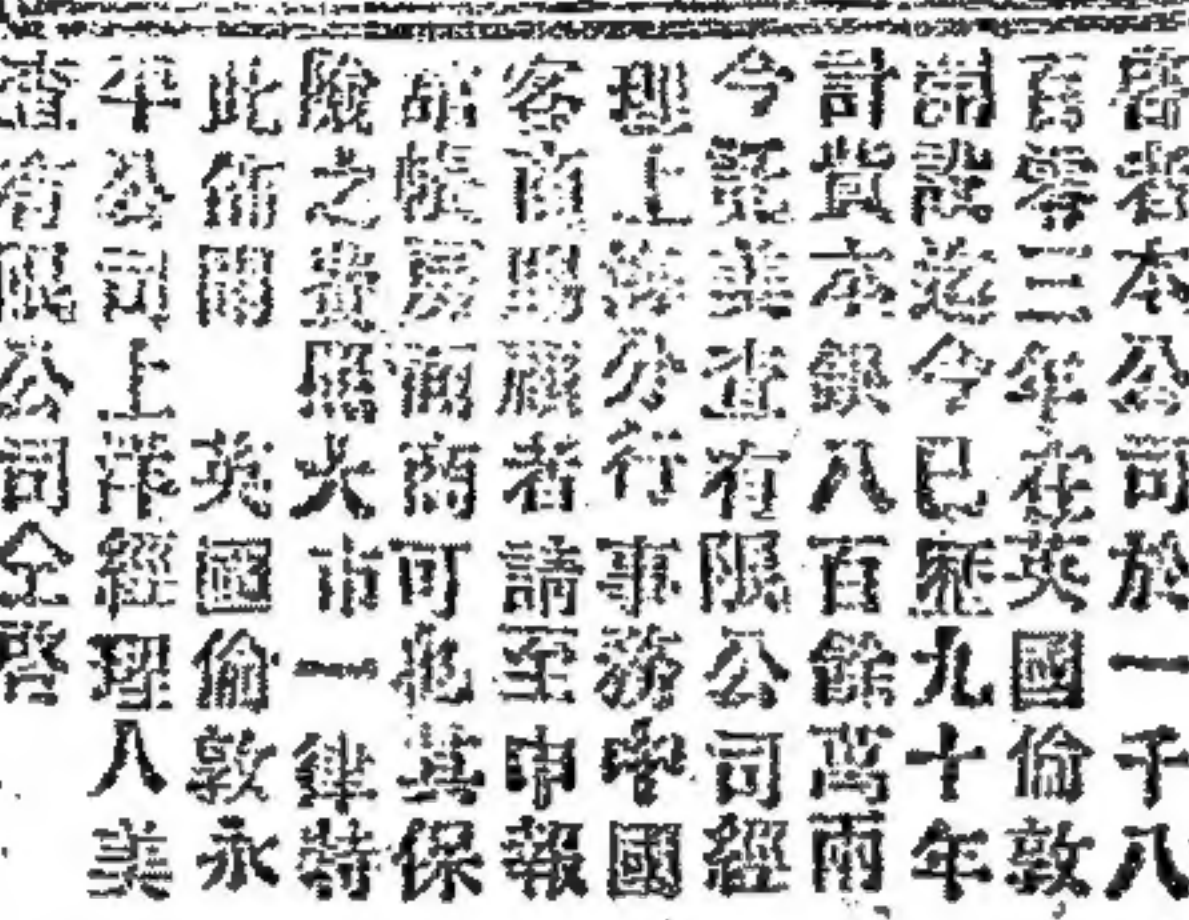 啓者本公司於一千八
百零三年在英國倫敦
開設迄今已歷九十年
計貲本銀八百餘萬兩
今託美查有限公司經
理上海分行事務中國
客商賜顧者請至申報
館帳房面商可也其保
險之費照大市一律特
此佈聞 英國倫敦永
平公司上洋經理人美
查有限公司仝啓